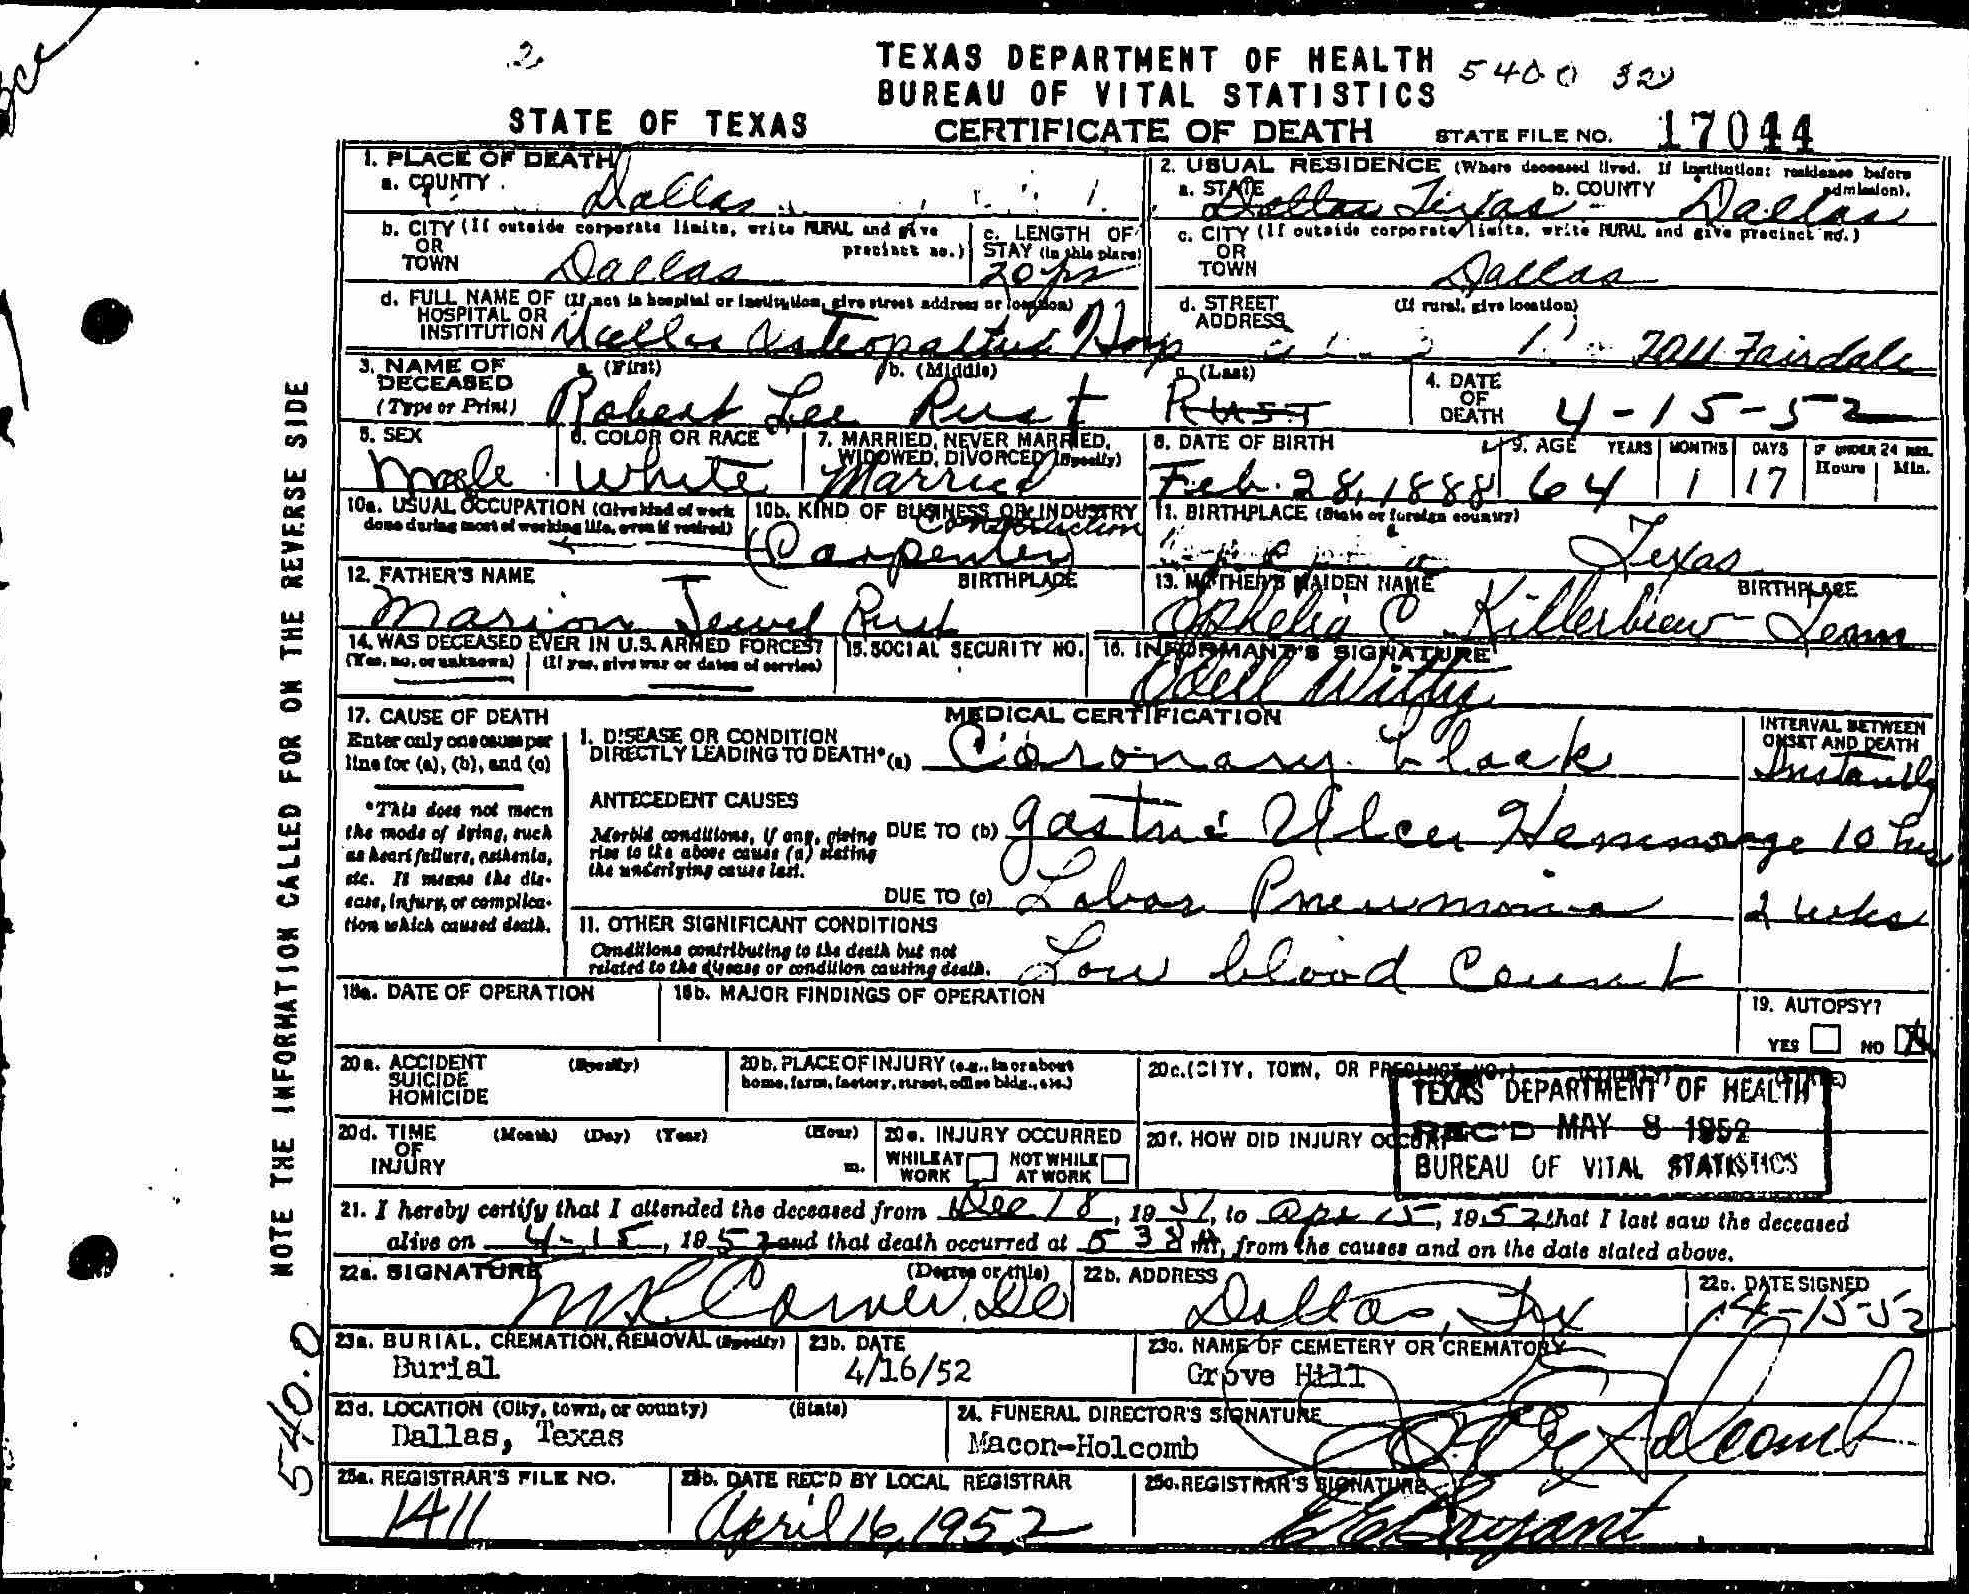 TEXAS DEPARTMENT OF HEALTH
BUREAU OF VITAL STATISTICS
5400 32
2
STATE OF TEXAS
CERTIFICATE OF DEATH
STATE FILE NO. 17044
1. PLACE OF DEATH
a. COUNTY
Dallas
2. USUAL RESIDENCE (Where deceased lived. If institution: residence before admission).
a. STATE Dallas Texas b. COUNTY Dallas
b. CITY (If outside corporate limits, write RURAL and give precinct no.)
OR
TOWN Dallas
c. LENGTH OF STAY (in this place)
20 yrs
c. CITY (If outside corporate limits, write RURAL and give precinct no.)
OR
TOWN Dallas
d. FULL NAME OF (If not in hospital or institution, give street address or location)
HOSPITAL OR
INSTITUTION Dallas Osteopathic Hosp
d. STREET (If rural, give location)
ADDRESS Fairdale
3. NAME OF DECEASED (Type or Print)
a. (First) b. (Middle) c. (Last)
Robert Lee Rust RUST
4. DATE OF DEATH 4-15-52
5. SEX
Male
6. COLOR OR RACE
White
7. MARRIED, NEVER MARRIED, WIDOWED, DIVORCED (Specify)
Married
8. DATE OF BIRTH
Feb. 28, 1888
9. AGE YEARS MONTHS DAYS IF UNDER 24 HRS. Hours Min.
64 1 17
10a. USUAL OCCUPATION (Give kind of work done during most of working life, even if retired)
10b. KIND OF BUSINESS OR INDUSTRY
Construction
(Carpenter)
11. BIRTHPLACE (State or foreign country)
Texas
12. FATHER'S NAME BIRTHPLACE
Marion Jewel Rust
13. MOTHER'S MAIDEN NAME BIRTHPLACE
Ophelia C. Killerbrew
14. WAS DECEASED EVER IN U.S. ARMED FORCES?
(Yes, no, or unknown) (If yes, give war or dates of service)
15. SOCIAL SECURITY NO.
16. INFORMANT'S SIGNATURE
Odell Witty
17. CAUSE OF DEATH
Enter only one cause per line for (a), (b), and (c)
*This does not mean the mode of dying, such as heart failure, asthenia, etc. It means the disease, injury, or complication which caused death.
MEDICAL CERTIFICATION
INTERVAL BETWEEN ONSET AND DEATH
I. DISEASE OR CONDITION
DIRECTLY LEADING TO DEATH* (a) Coronary block Instantly
ANTECEDENT CAUSES
Morbid conditions, if any, giving rise to the above cause (a) stating the underlying cause last.
DUE TO (b) Gastric Ulcer Hemmorage 10 hrs
DUE TO (c) Lobar Pneumonia 2 wks
II. OTHER SIGNIFICANT CONDITIONS
Conditions contributing to the death but not related to the disease or condition causing death.
Low blood Count
18a. DATE OF OPERATION
18b. MAJOR FINDINGS OF OPERATION
19. AUTOPSY?
YES NO X
20a. ACCIDENT (Specify)
SUICIDE
HOMICIDE
20b. PLACE OF INJURY (e.g., in or about home, farm, factory, street, office bldg., etc.)
20c. (CITY, TOWN, OR PRECINCT NO.) (COUNTY) (STATE)
TEXAS DEPARTMENT OF HEALTH
REC'D MAY 8 1952
BUREAU OF VITAL STATISTICS
20d. TIME OF INJURY (Month) (Day) (Year) (Hour) m.
20e. INJURY OCCURRED
WHILE AT WORK NOT WHILE AT WORK
20f. HOW DID INJURY OCCUR?
21. I hereby certify that I attended the deceased from Dec 18, 1951, to Apr 15, 1952 that I last saw the deceased
alive on 4-15, 1952 and that death occurred at 5 38 A m, from the causes and on the date stated above.
22a. SIGNATURE (Degree or title)
22b. ADDRESS
Dallas, Tex
22c. DATE SIGNED
4-15-52
23a. BURIAL, CREMATION, REMOVAL (Specify)
Burial
23b. DATE
4/16/52
23c. NAME OF CEMETERY OR CREMATORY
Grove Hill
23d. LOCATION (City, town, or county) (State)
Dallas, Texas
24. FUNERAL DIRECTOR'S SIGNATURE
Macon-Holcomb
Holcomb
25a. REGISTRAR'S FILE NO.
1411
25b. DATE REC'D BY LOCAL REGISTRAR
April 16, 1952
25c. REGISTRAR'S SIGNATURE
EE Bryant
NOTE THE INFORMATION CALLED FOR ON THE REVERSE SIDE
540.0